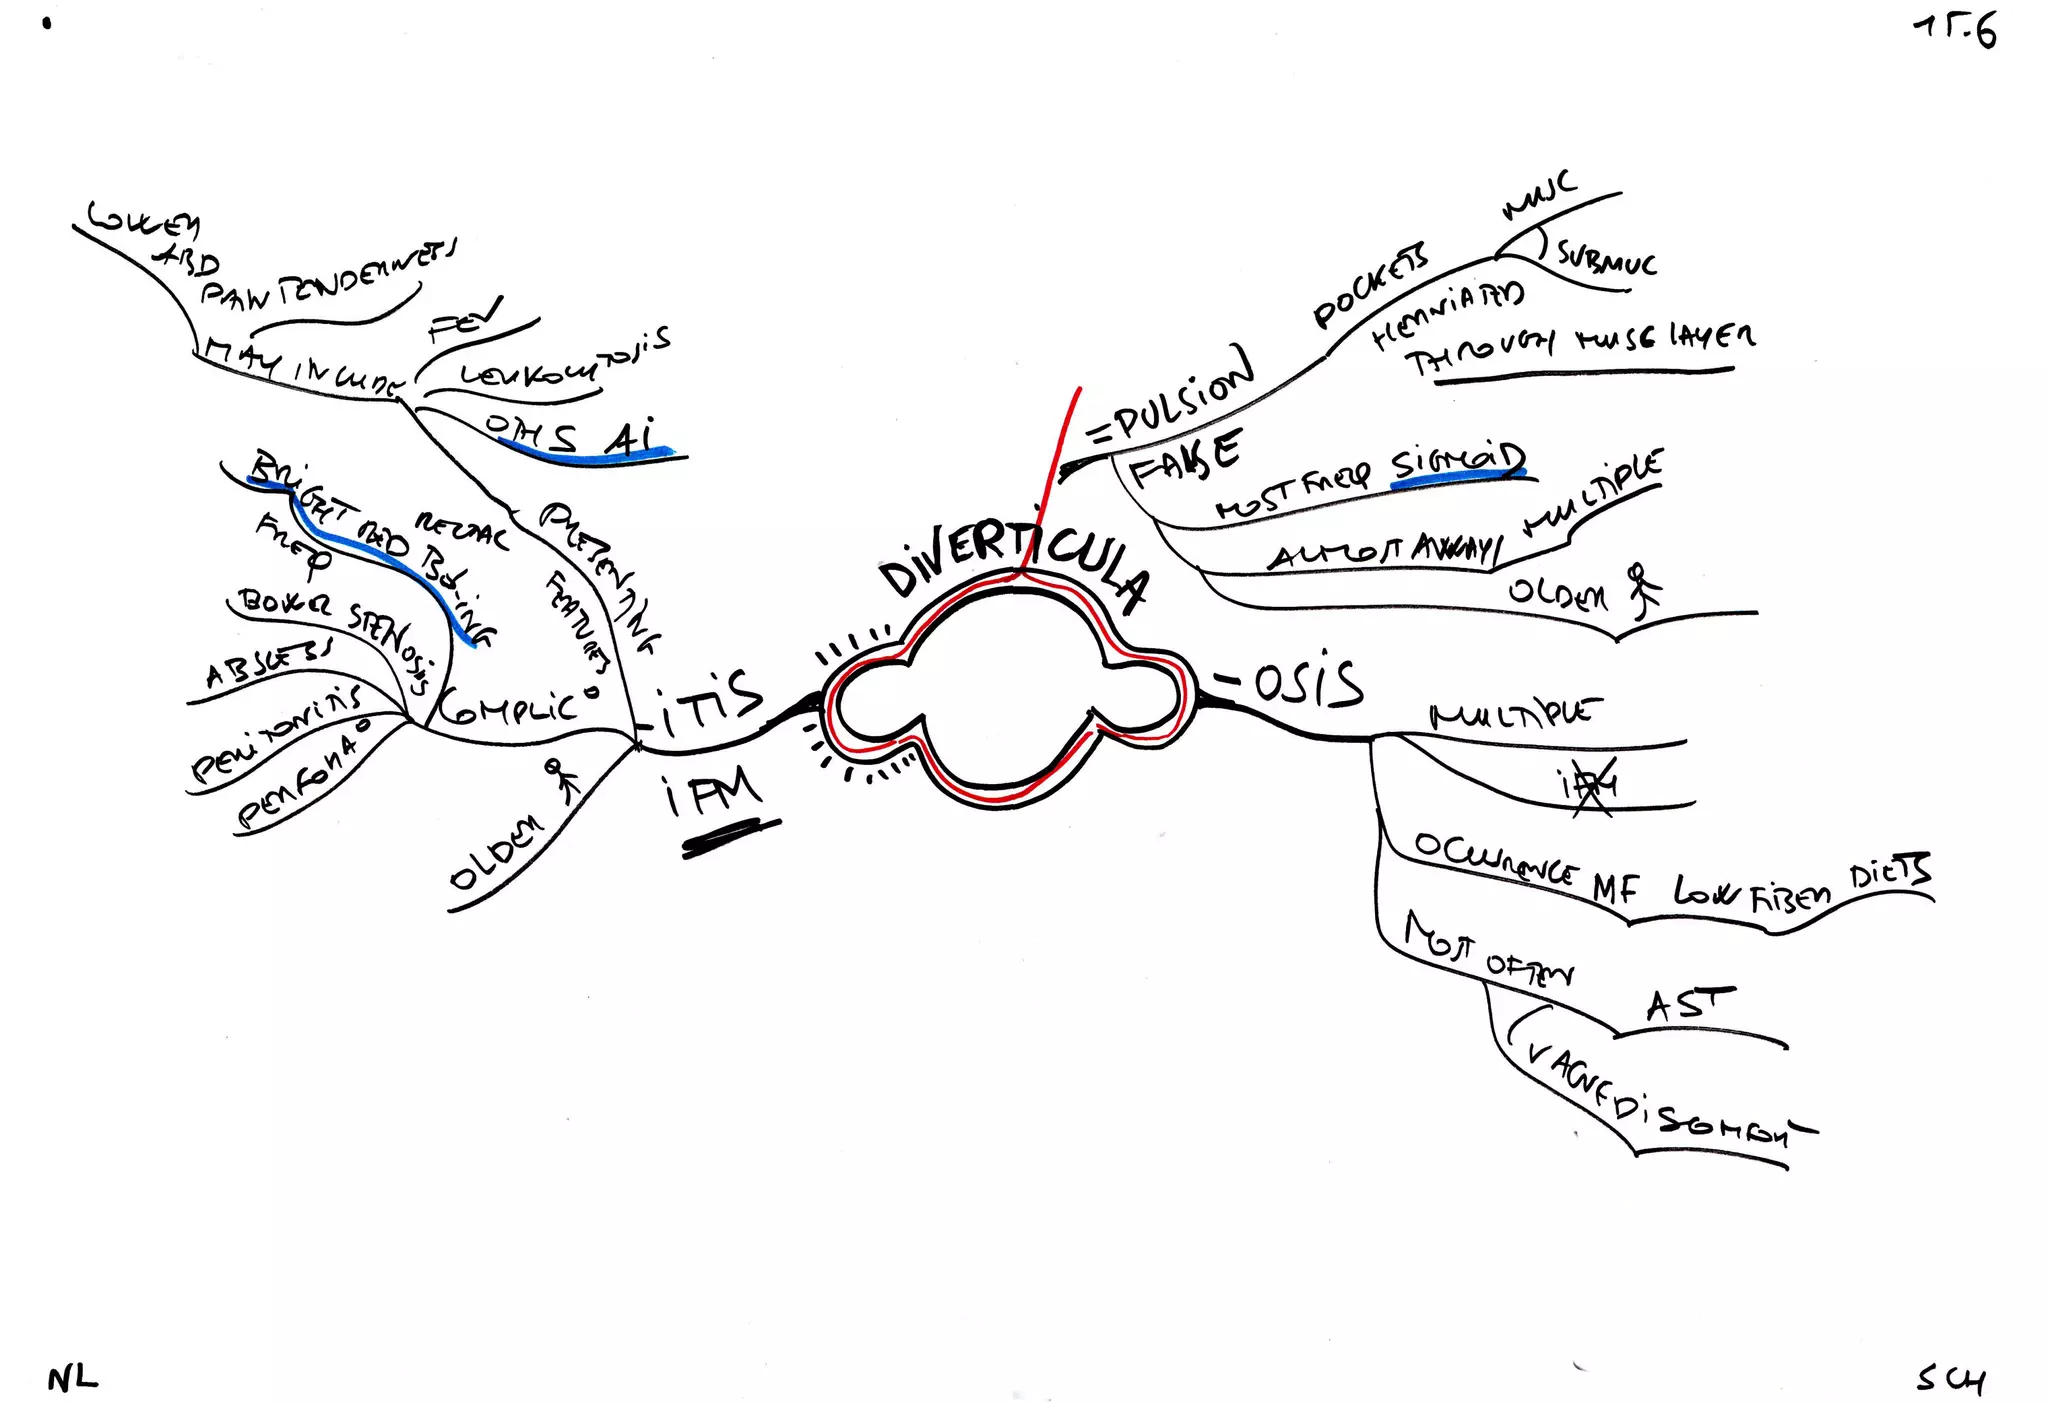 15.6
DIVERTICULA
= PULSION
FALSE
POCKETS
MUC
SUBMUC
HERNIATED
THROUGH MUSC LAYER
MOST FREQ SIGMOID
ALMOST ALWAYS MULTIPLE
OLDER
- OSIS
MULTIPLE
IFM
OCURRENCE MF LOW FIBER DIETS
MOST OFTEN
AST
VAGUE DISCOMFORT
- ITIS
IFM
PRESENTING
FEATURES
MAY INCLUDE
LOWER
ABD
PAIN TENDERNESS
FEV
LEUKOCYTOSIS
COMPLIC°
BRIGHT RED RECTAL
FREQ
BOWEL STENOSIS
ABSCESS
PERITONITIS
PERFORA°
OLDER
NL
SCH